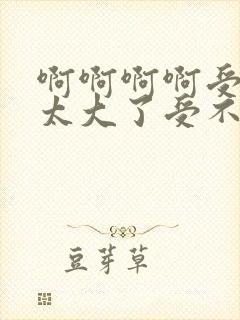 啊啊啊啊受
太大了受不
豆芽草